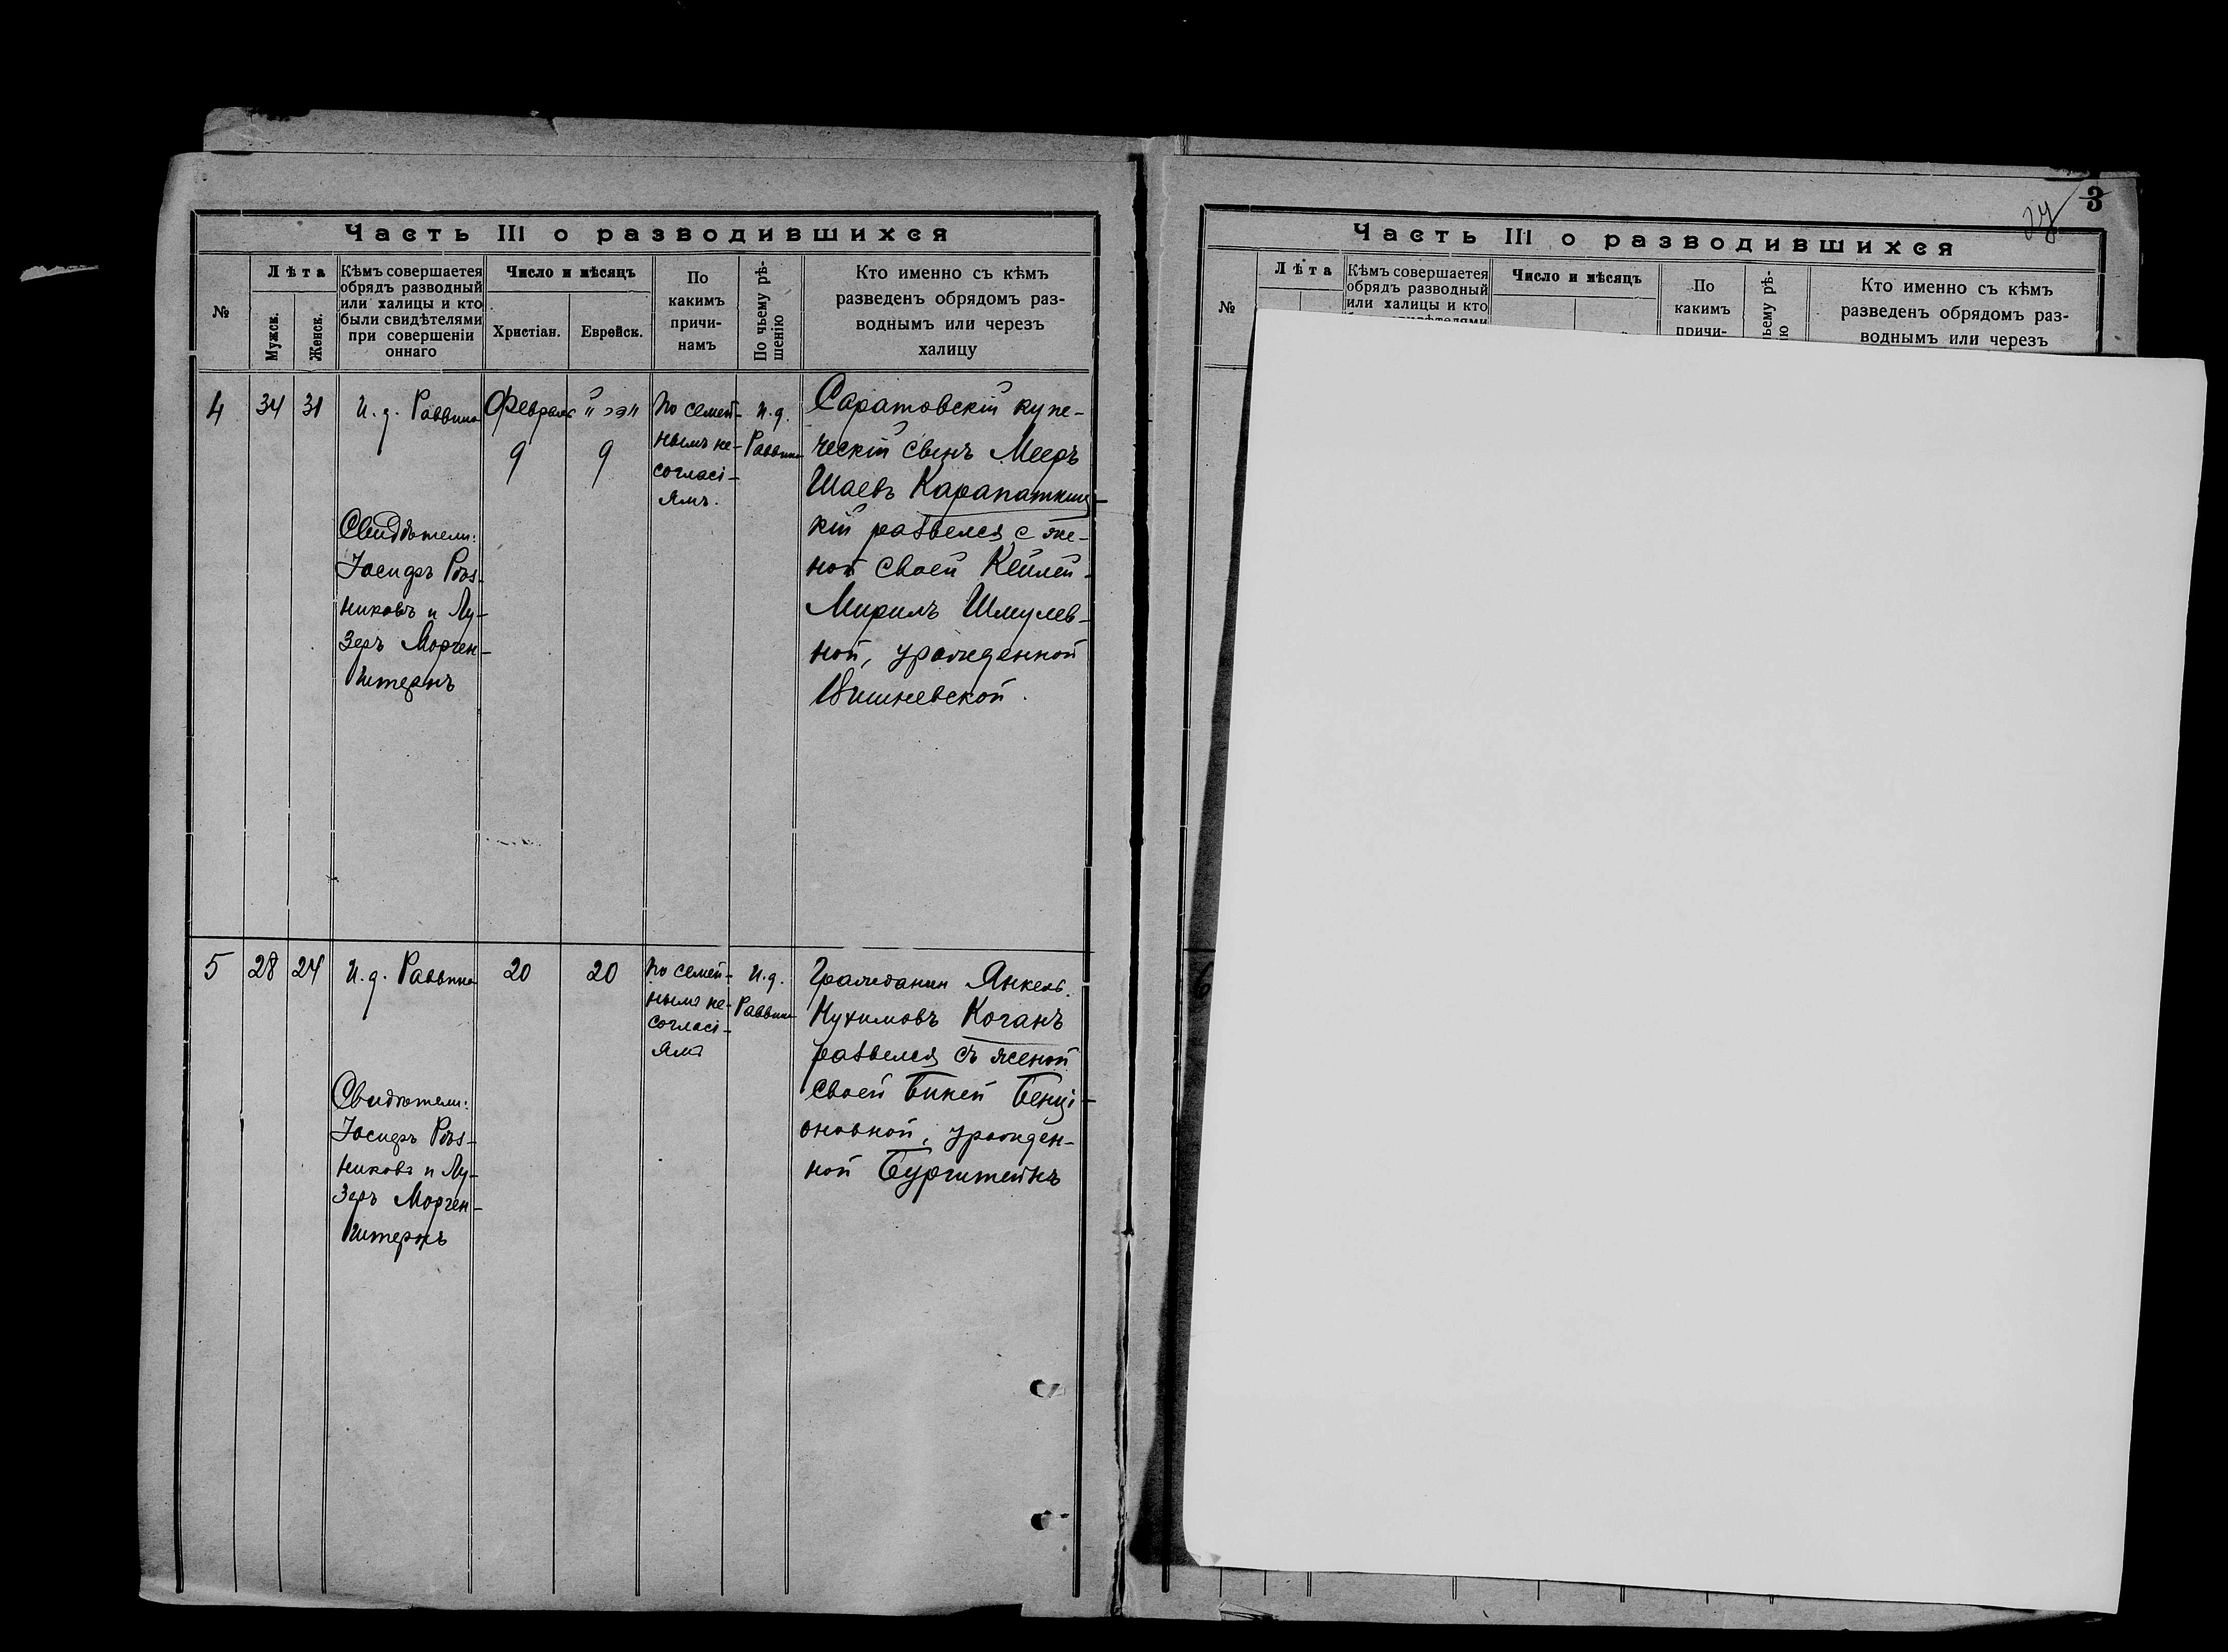 Часть III о разводившихся
№
Лѣта
Мужск.
Женск.
Кѣмъ совершается
обрядъ разводный
или халицы и кто
были свидѣтелями
при совершеніи
оннаго
Число и мѣсяцъ
Христіан.
Еврейск.
По
какимъ
причи-
намъ
По чьему рѣ-
шенію
Кто именно съ кѣмъ
разведенъ обрядомъ раз-
воднымъ или черезъ
халицу
4
34
31
И. д. Раввина
Свидѣтели:
Іосифъ Рѣз-
никовъ и Лу-
зеръ Морген-
штернъ
Февраль
9
9
По семей-
нымъ не-
согласі-
ямъ.
И. д.
Раввина
Саратовскій купе-
ческій сынъ Мееръ
Шаевъ Карапатниц-
кій развелся с же-
ной своей Кейлей-
Мирилъ Шмулев-
ной, урожденной
Вишневской.
5
28
24
И. д. Раввина
Свидѣтели:
Іосифъ Рѣз-
никовъ и Лу-
зеръ Морген-
штернъ
20
20
По семей-
нымъ не-
согласі-
ямъ
И. д.
Раввина
Гражданин Янкель
Нухимовъ Коганъ
развелся съ женой
своей Бикей Бенці-
оновной, урожден-
ной Бургштейнъ
3
Часть III о разводившихся
№
Лѣта
Кѣмъ совершается
обрядъ разводный
или халицы и кто
Число и мѣсяцъ
По
какимъ
причи-
Кто именно съ кѣмъ
разведенъ обрядомъ раз-
воднымъ или черезъ
6